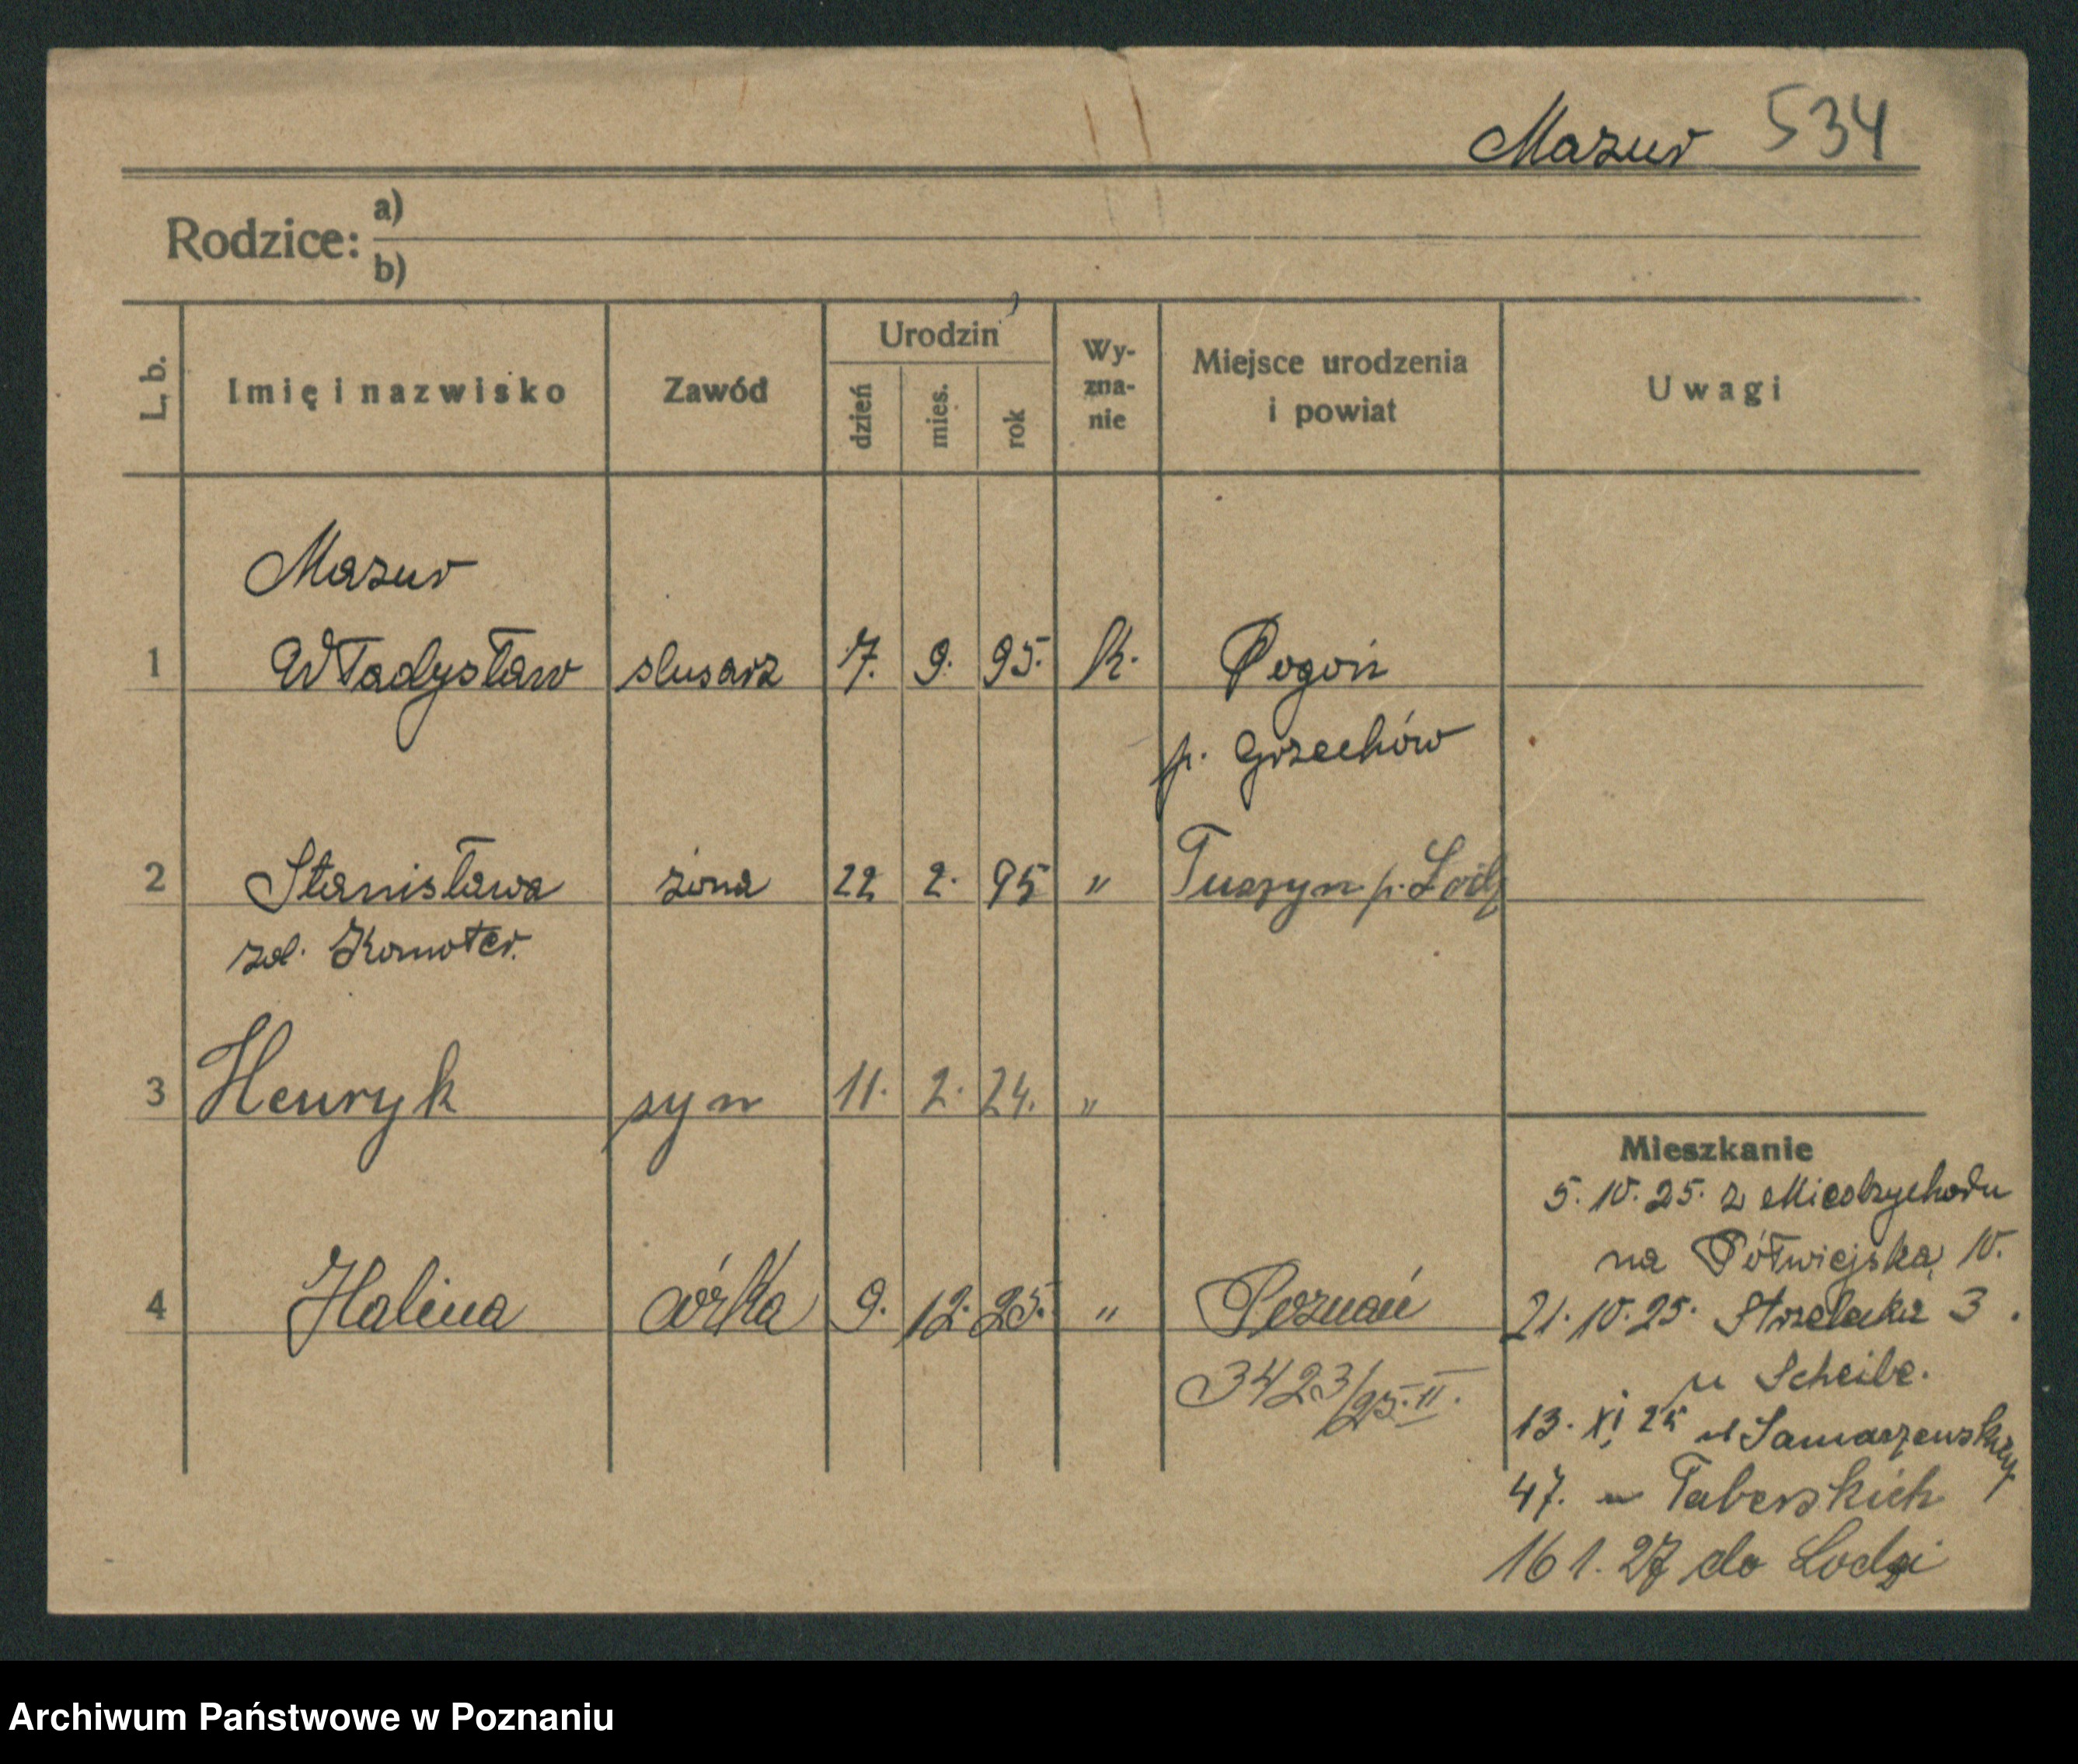 Mazur 534
Rodzice: a)
b)
L. b. Imię i nazwisko Zawód Urodzin dzień mies. rok Wy-zna-nie Miejsce urodzenia i powiat Uwagi
Mazur
1 Władysław slusarz 7. 9. 95. k. Pogoń
p. Grzechów
2 Stanisława żona 22 2. 95 " Tuszyn p. Łódź
zd.
3 Henryk syn 11. 2. 24. "
Mieszkanie
5. 10. 25. z Miedzychodu
na Półwiejską 10.
4 Halina córka 9. 12. 25. " Poznań
3423/25. II.
21. 10. 25. 3.
u Scheibe.
13. XI 25
47. u Taberskich
16 1. 27 do Łodzi
Archiwum Państwowe w Poznaniu